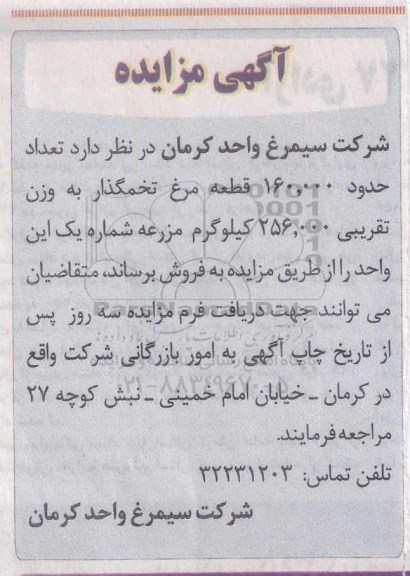 آگهی مزایده
شرکت سیمرغ واحد کرمان در نظر دارد تعداد
حدود ۱۶۰,۰۰۰ قطعه مرغ تخمگذار به وزن
تقریبی ۲۵۶,۰۰۰ کیلوگرم مزرعه شماره یک این
واحد را از طریق مزایده به فروش برساند، متقاضیان
می توانند جهت دریافت فرم مزایده سه روز پس
از تاریخ چاپ آگهی به امور بازرگانی شرکت واقع
در کرمان ـ خیابان امام خمینی ـ نبش کوچه ۲۷
مراجعه فرمایند.
تلفن تماس: ۳۲۲۳۱۲۰۳
شرکت سیمرغ واحد کرمان